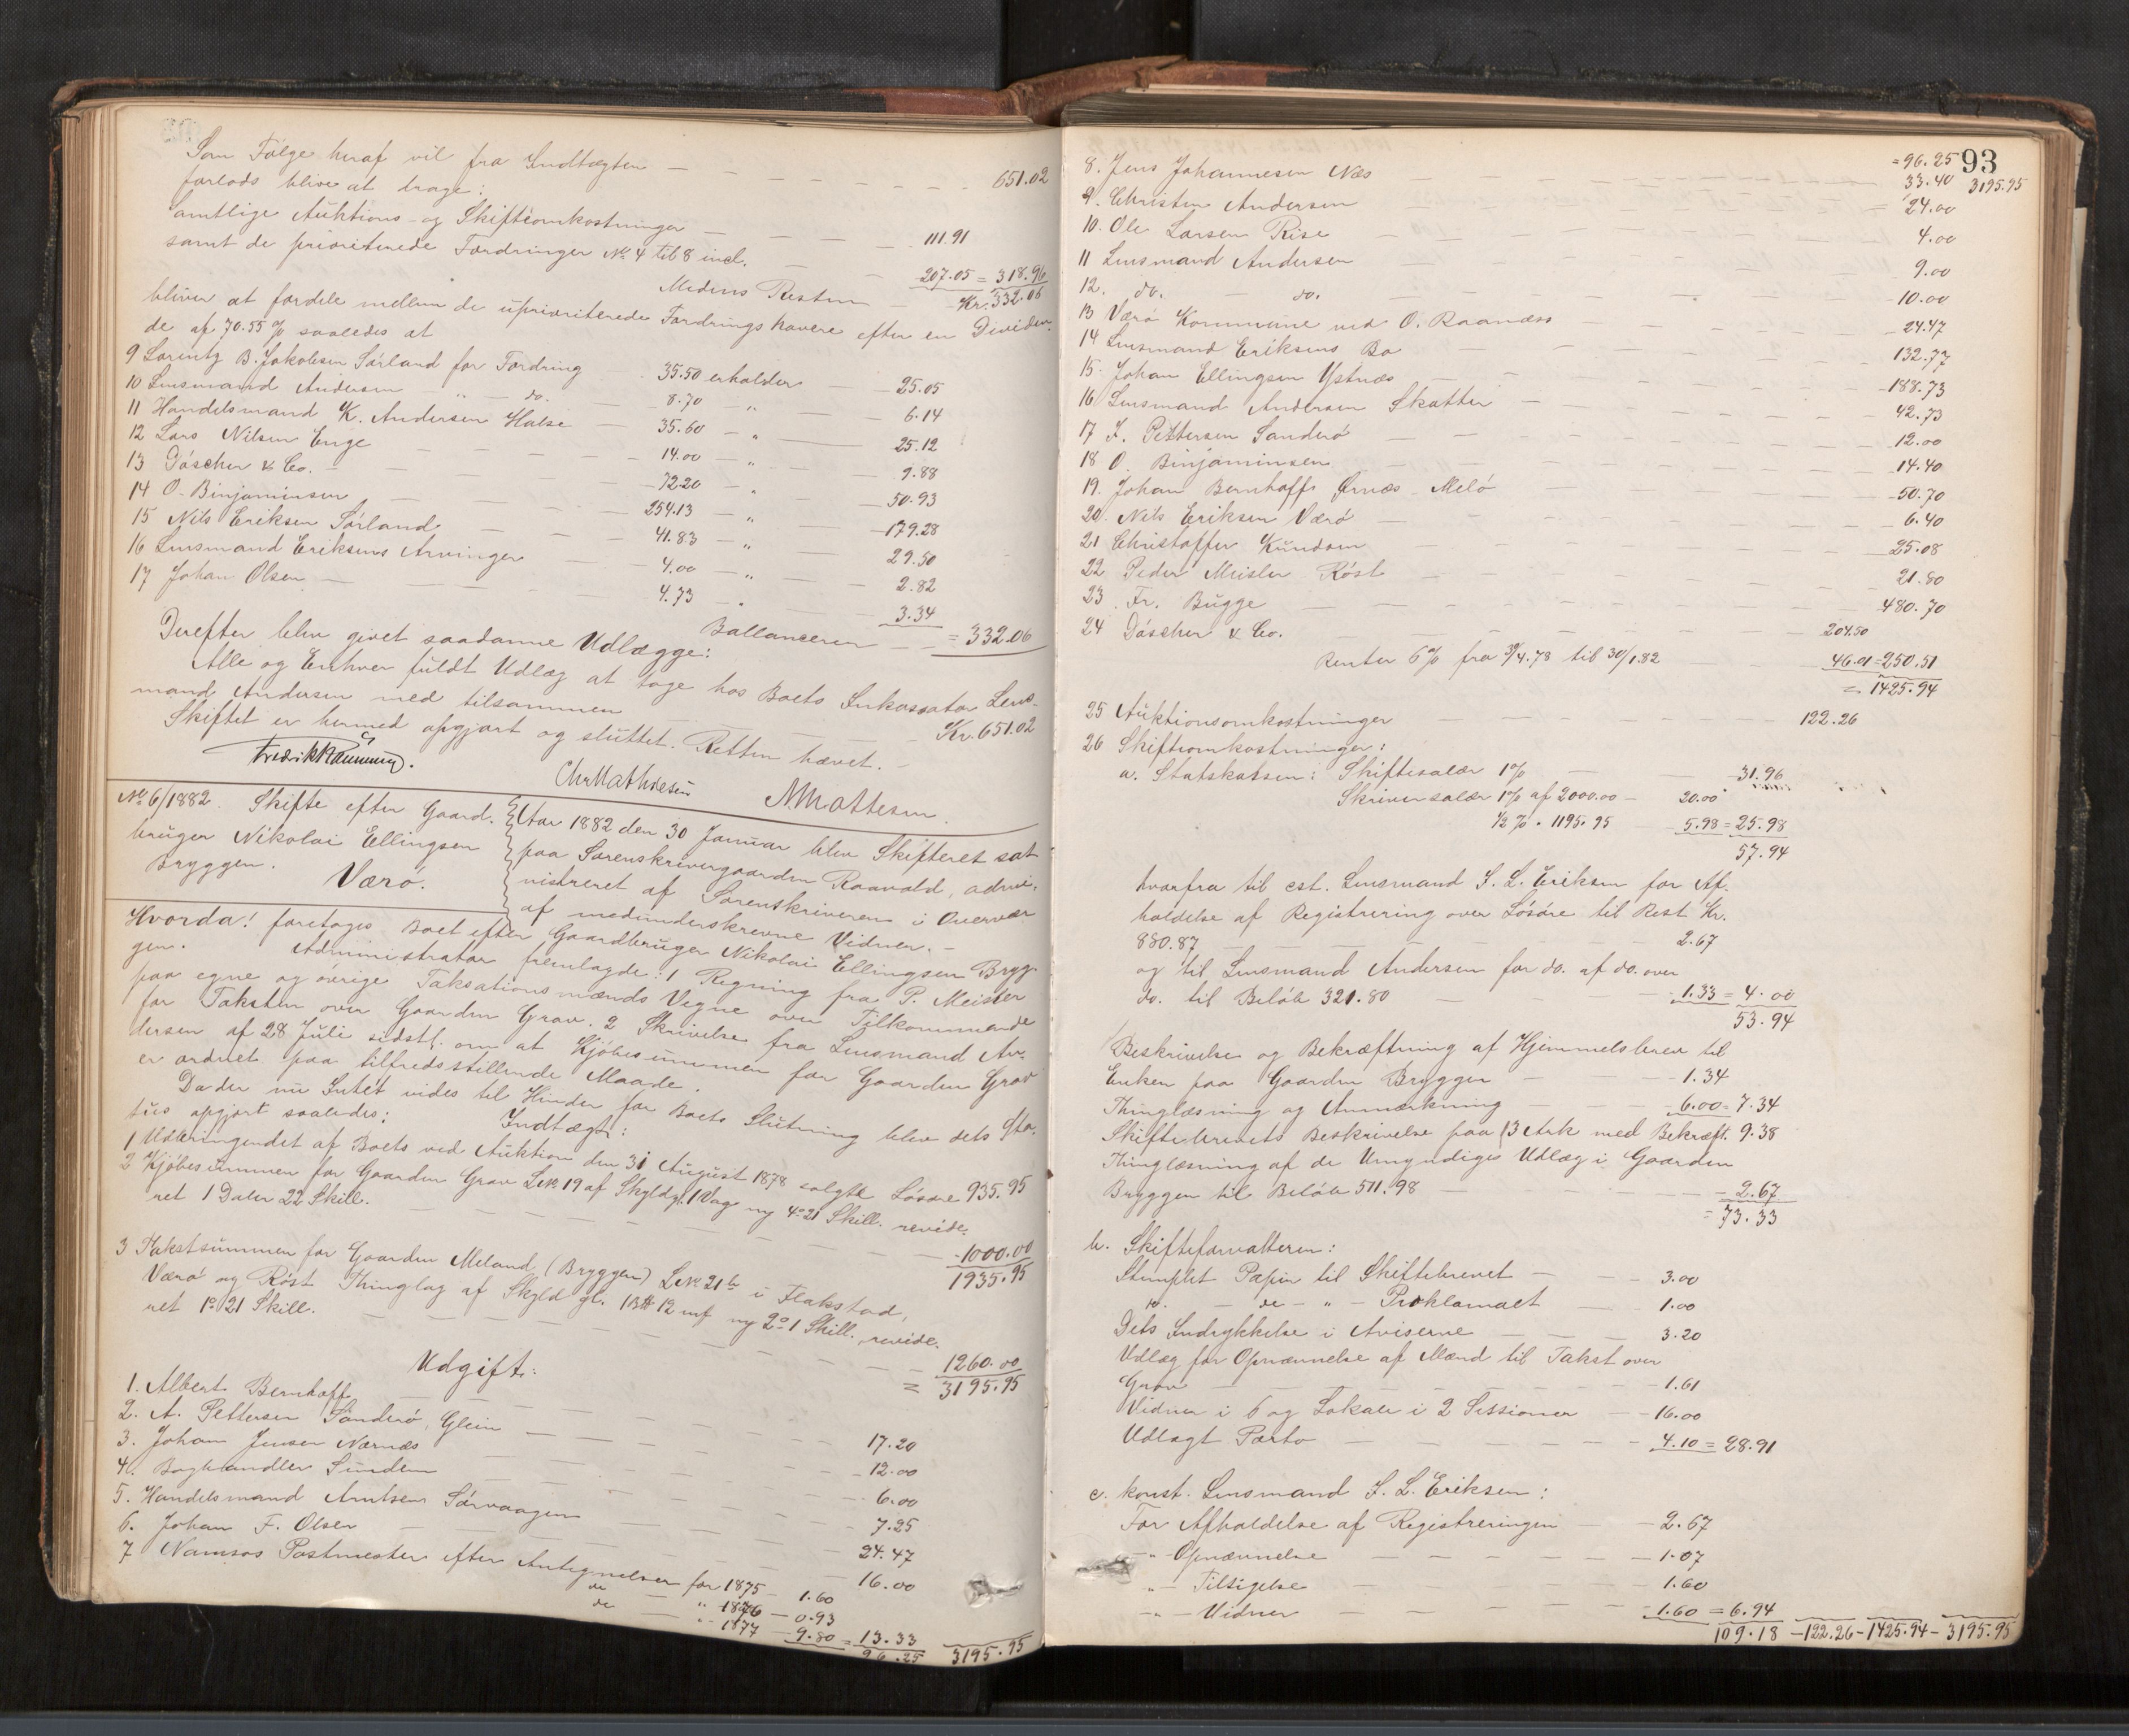 Som Følge heraf vil fra Indtægten — 651.02
forlods blive at drage:
Samtlige Auktions- og Skifteomkostninger — 111.91
samt de prioriterede Fordringer No. 4 til 8 incl. — 207.05 = 318.96
Medens Resten Kr. 332.06
bliver at fordele mellem de uprioriterede Fordringshavere efter en Dividen-
de af 70.55 % saaledes at
9 Lorentz B. Jakobsen Sørland for Fordring 35.50 erholder — 25.05
10 Lensmand Andersen " — do. — 8.70 " — 6.14
11 Handelsmand K. Andersen Halse — 35.60 — " — 25.12
12 Lars Nilsen Enge — 14.00 — " — 9.88
13 Döscher & Co. — 72.20 — " — 50.93
14 O. Binjaminsen — 254.13 — " — 179.28
15 Nils Eriksen Sørland — 41.83 — " — 29.50
16 Lensmand Eriksens Arvinger — 4.00 — " — 2.82
17 Johan Olsen — 4.73 — " — 3.34
Ballancerer — = 332.06
Derefter blev givet saadanne Udlægge:
Alle og Enhver fuldt Udlæg at tage hos Boets Inkassator Lens-
mand Andersen med tilsammen — Kr. 651.02
Skiftet er hermed opgjort og sluttet. Retten hævet. —
Chr Mathiesen
M Mattesen.
No. 6/1882. Skifte efter Gaard-
bruger Nikolai Ellingsen
Bryggen.
Værø.
Aar 1882 den 30 Januar blev Skifteret sat
paa Sorenskrivergaarden Raavold, admi-
nistreret af Sorenskriveren i Overvær
af medunderskrevne Vidner. —
Hvorda! foretoges Boet efter Gaardbruger Nikolai Ellingsen Bryg-
gen. Administrator fremlagde: 1 Regning fra P. Meisler
paa egne og øvrige Taksationsmænds Vegne over Tilkommende
for Taksten over Gaarden Grav. 2 Skrivelse fra Lensmand An-
dersen af 28 Juli sidstl. om at Kjøbesummen for Gaarden Grav
er ordnet paa tilfredsstillende Maade.
Da der nu Intet vides til Hinder for Boets Slutning blev dets Sta-
tus opgjort saaledes:
Indtægt:
1 Udbringendet af Boets ved Auktion den 31 August 1878 solgte Løsøre 935.95
2 Kjøbesummen for Gaarden Grav LNo 19 af Skyld gl. 1 Vog ny 4-21 Skill. revide-
ret 1 Daler 22 Skill. — 1000.00
1935.95
3 Takstsummen for Gaarden Meland (Bryggen) LNo 21b i Flakstad,
Værø og Røst Thinglag af Skyld gl. 1 B# 12 mf ny 2-1 Skill., revide-
ret 1-21 Skill. — 1260.00
= 3195.95
Udgift:
1. Albert Bernhoff — 17.20
2. A. Pettersen Sanderø, Glein — 12.00
3. Johan Jensen Nærnæs — 6.00
4. Boghandler Sundem — 7.25
5. Handelsmand Arntsen Sørvaagen — 24.47
6. Johan F. Olsen — 16.00
7 Namsos Postmester efter Antegnelser for 1875 — 1.60
do — " 1876 — 0.93
do — " 1877 — 9.80 = 13.33
96.25 3195.95
93
= 96.25 3195.95
8. Jens Johannesen Næs — 33.40
9. Christen Andersen — 24.00
10. Ole Larsen Rise — 4.00
11 Lensmand Andersen — 9.00
12. do. — do. — 10.00
13 Værø Kommune ved O. Raanæss — 24.47
14 Lensmand Eriksens Bo — 132.77
15. Johan Ellingsen Ystnæs — 188.73
16 Lensmand Andersen Skatter — 42.73
17 J. Pettersen Sanderø — 12.00
18 O. Binjaminsen — 14.40
19. Johan Bernhoff Ørnæs Melø — 50.70
20. Nils Eriksen Værø — 6.40
21 Christoffer Knudsen — 25.08
22 Peder Meisler Røst — 21.80
23. Fr. Bugge — 480.70
24 Döscher & Co. — 204.50
Renter 6 % fra 30/4.78 til 30/1.82 — 46.01 = 250.51
= 1425.94
25 Auktionsomkostninger — 122.26
26 Skifteomkostninger:
a. Statskassen: Skiftesalær 1 % — 31.96
Skriversalær 1 % af 2000.00 — 20.00
1/2 % " 1195.95 — 5.98 = 25.98
57.94
hvorfra til cst. Lensmand S. L. Eriksen for Af-
holdelse af Registrering over Løsøre til Rest Kr.
880.87 — 2.67
og til Lensmand Andersen for do. af do. over
do. til Beløb 321.80 — 1.33 = 4.00
53.94
Beskrivelse og Bekræftning af Hjemmelsbrev til
Enken paa Gaarden Bryggen — 1.34
Thinglæsning og Anmærkning — 6.00 = 7.34
Skiftebrevets Beskrivelse paa 13 Ark med Bekræft. 9.38
Thinglæsning af de Umyndiges Udlæg i Gaarden
Bryggen til Beløb 511.98 — 2.67
= 73.33
b. Skifteforvalteren:
Stemplet Papir til Skiftebrevet — 3.00
do. — do — " — Proklamaet — 1.00
Dets Indrykkelse i Aviserne — 3.20
Udlæg for Opnævnelse af Mænd til Takst over
Grav — 1.61
Vidner i 6 og Lokale i 2 Sessioner — 16.00
Udlagt Porto — 4.10 = 28.91
c. konst. Lensmand S. L. Eriksen:
For Afholdelse af Registreringen — 2.67
— " — Opnævnelse — 1.07
" — Tilsigelse — 1.60
— " — Vidner — 1.60 = 6.94
109.18 — 122.26 — 1425.94 — 3195.95